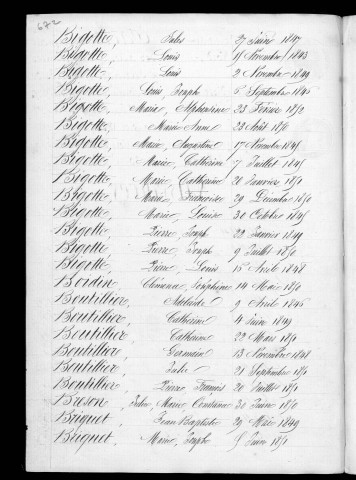 672
Bigotte, Jules 27 Juin
Bigotte, Louis Novembre 1843
Bigotte, Louis 2 Novembre 1849
Bigotte, Louis Joseph 5 Septembre 1845
Bigotte, Marie, Alphonsine 23 Février 1852
Bigotte, Marie Anne 23 Août
Bigotte, Marie, Augustine 17 Novembre
Bigotte, Marie, Catherine 7 Juillet
Bigotte, Marie Catherine 20 Janvier
Bigotte, Marie, Françoise 29 Décembre
Bigotte, Marie, Louise 30 Octobre
Bigotte, Pierre, Joseph 22 Janvier
Bigotte, Pierre, Joseph 9 Juillet
Bigotte, Pierre, Louis 15 Août 1848
Boidin, Clémence, Joséphine 14 Mai
Boutillier, Adélaïde 9 1845
Boutillier, Catherine 4 Juin 1849
Boutillier, Catherine 22 Mars
Boutillier, Germain 13 Novembre 1848
Boutillier, Jules 21 Septembre
Boutillier, Pierre Francis 20 Juillet
Breson, Marie, 30 Juin
Briquet, Jean Baptiste 29 Mai 1849
Briquet, Marie, Joseph Juin